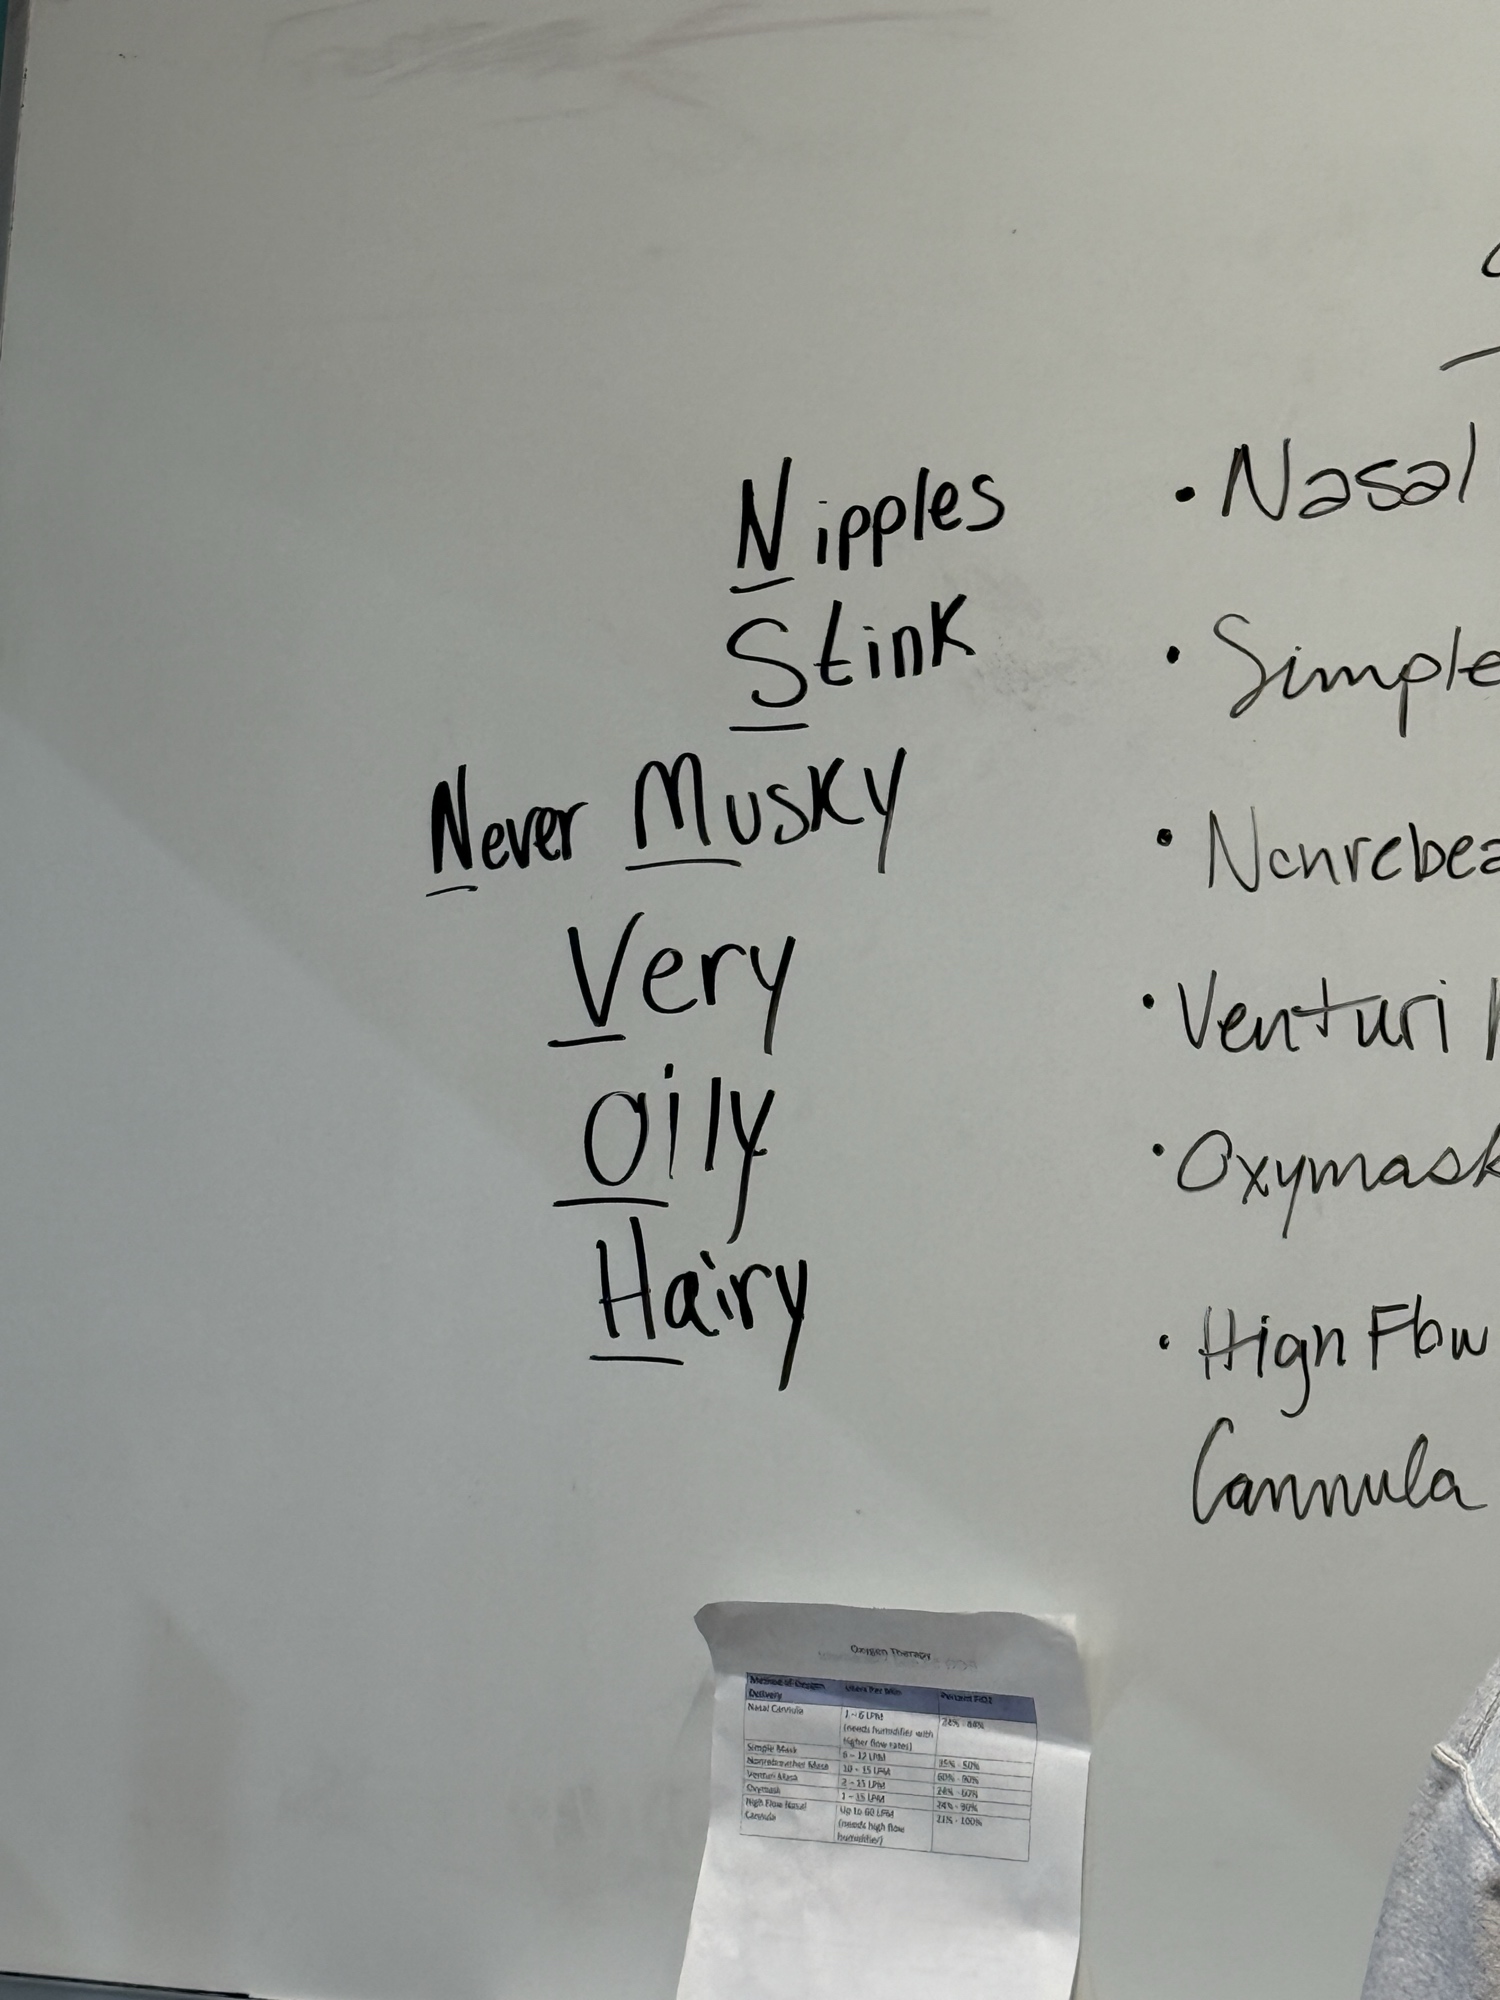 Nipples
Stink
Never Musky
Very
Oily
Hairy
• Nasal
• Simple
• Nonrebea
• Venturi
• Oxymask
• High Flow
Cannula
Oxygen Therapy
Method of Oxygen Delivery | Liters Per Min | Percent FiO2
Nasal Cannula | 1 - 6 LPM (needs humidifier with higher flow rates) | 24% - 44%
Simple Mask | 6 - 12 LPM | 35% - 50%
Nonrebreather Mask | 10 - 15 LPM | 60% - 90%
Venturi Mask | 2 - 15 LPM | 24% - 60%
Oxymask | 1 - 15 LPM | 24% - 90%
High Flow Nasal Cannula | Up to 60 LPM (needs high flow humidifier) | 21% - 100%